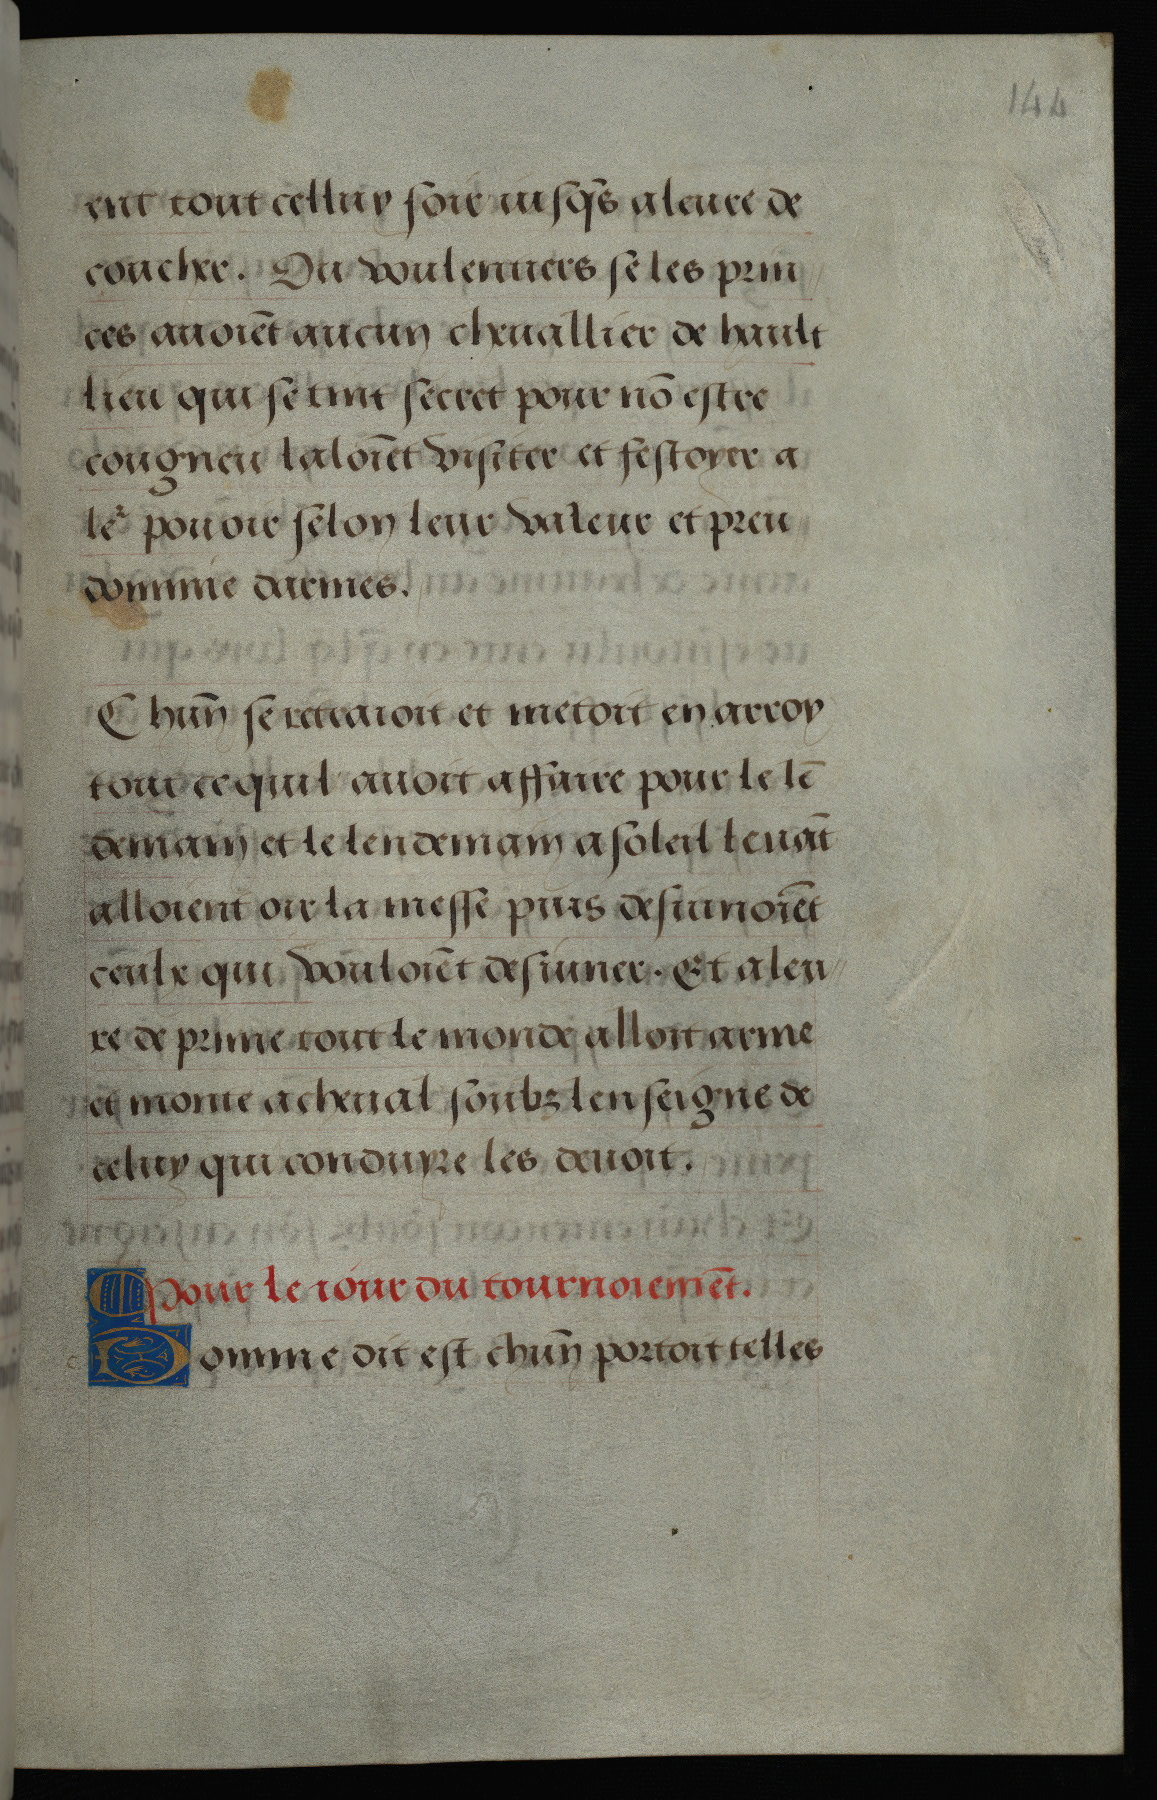 144
ent tout celluy soir iusqs̃ a leure de
coucher. Ou voulentiers se les prin
ces auoiẽt aucun cheuallier de hault
lieu qui se tint secret pour nõ estre
congneu laloiẽt visiter et festoyer a
leʳ pouoir selon leur valeur et preu
dommie darmes.
Chuñ se retraioit et metoit en arroy
tout ce quil auoit affaire pour le lẽ
demain et le lendemain a soleil leuãt
alloient oir la messe puis desiunoiẽt
ceulx qui vouloiẽt desiuner. Et a leu
re de prime tout le monde alloit arme
et monte a cheual soubz lenseigne de
celuy qui conduyre les deuoit.
Pour le iour du tournoiemẽt.
c Comme dit est chuñ portoit telles